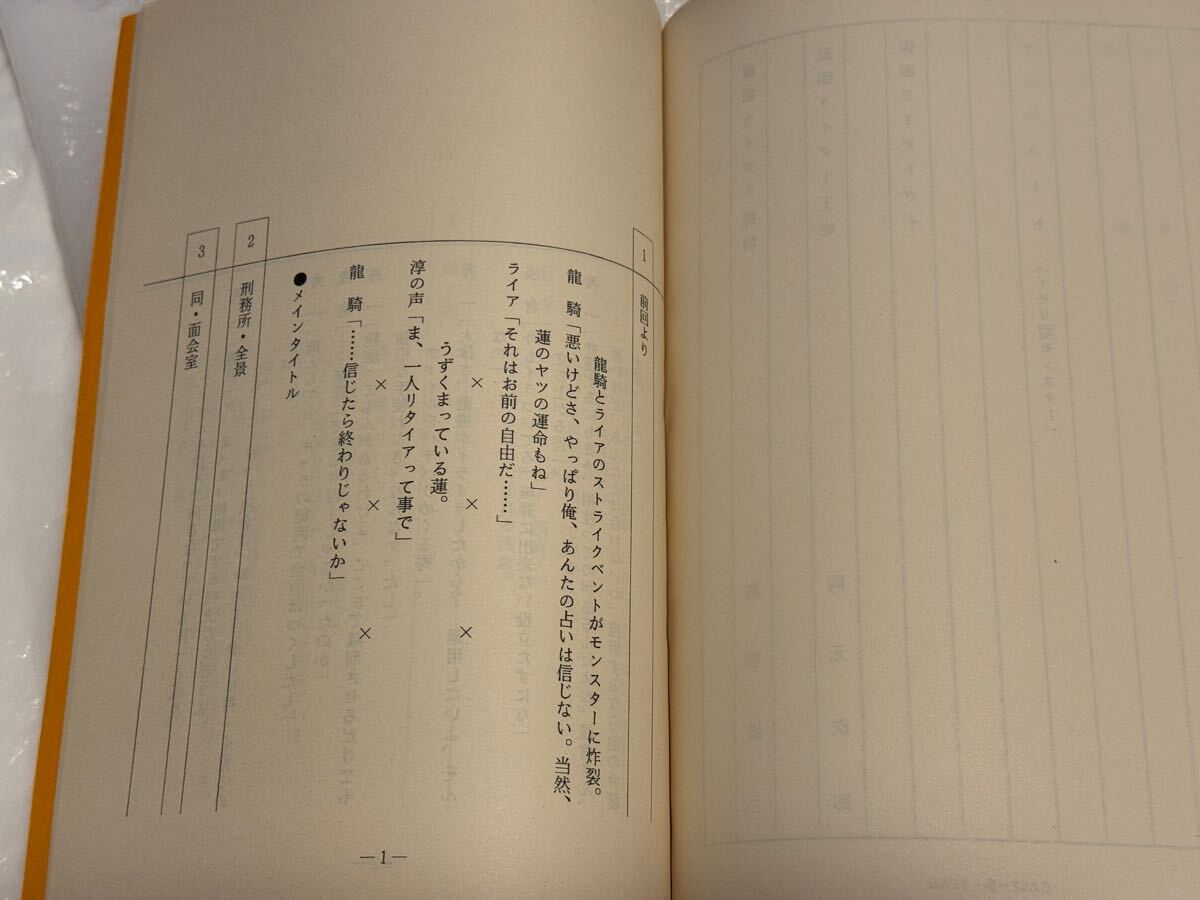 1 前回より
龍騎とライアのストライクベントがモンスターに炸裂。
龍　騎「悪いけどさ、やっぱり俺、あんたの占いは信じない。当然、
蓮のヤツの運命もね」
ライア「それはお前の自由だ……」
×　×　×
うずくまっている蓮。
淳の声「ま、一人リタイアって事で」
×　×　×
龍　騎「……信じたら終わりじゃないか」
●メインタイトル
2 刑務所・全景
3 同・面会室
—1—